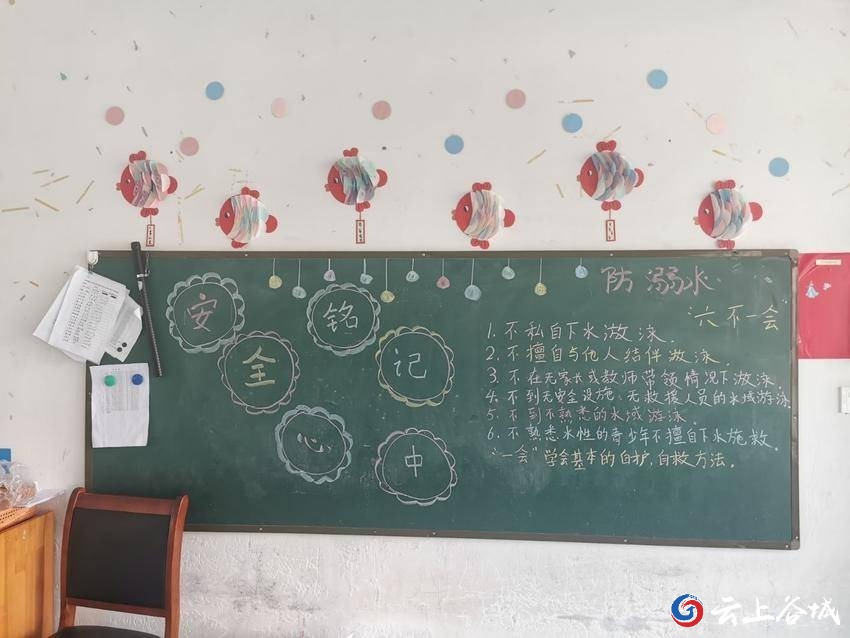 安全铭记心中
防溺水
"六不一会
1. 不私自下水游泳.
2. 不擅自与他人结伴游泳.
3. 不在无家长或教师带领情况下游泳.
4. 不到无安全设施、无救援人员的水域游泳
5. 不到不熟悉的水域游泳.
6. 不熟悉水性的青少年不擅自下水施救.
"一会"学会基本的自护,自救方法.
云上谷城